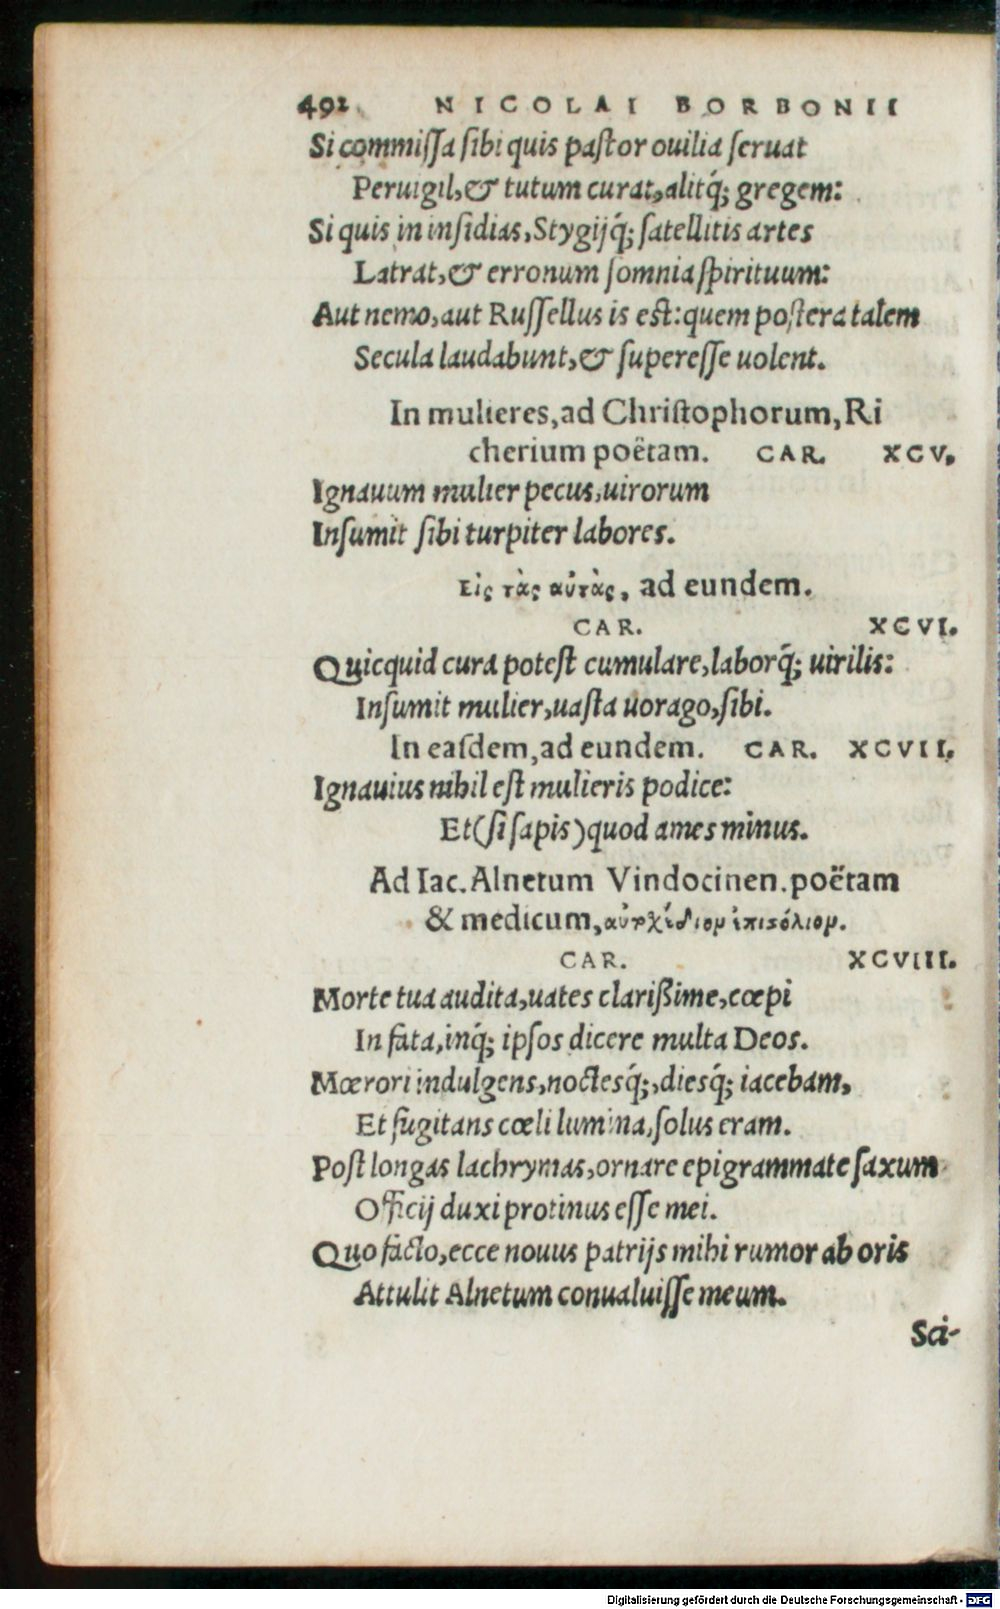 492 NICOLAI BORBONII
Si commiſſa ſibi quis paſtor ouilia ſeruat
Peruigil, & tutum curat, alitq́; gregem:
Si quis in inſidias, Stygijq́; ſatellitis artes
Latrat, & erronum ſomnia ſpirituum:
Aut nemo, aut Ruſſellus is eſt: quem poſtera talem
Secula laudabunt, & ſupereſſe uolent.
In mulieres, ad Chriſtophorum, Ri
cherium poëtam. CAR. XCV.
Ignauum mulier pecus, uirorum
Inſumit ſibi turpiter labores.
Εἰς τὰς αὐτὰς, ad eundem.
CAR. XCVI.
Quicquid cura poteſt cumulare, laborq́; uirilis:
Inſumit mulier, uaſta uorago, ſibi.
In eaſdem, ad eundem. CAR. XCVII.
Ignauius nihil eſt mulieris podice:
Et (ſi ſapis) quod ames minus.
Ad Iac. Alnetum Vindocinen. poëtam
& medicum,
CAR. XCVIII.
Morte tua audita, uates clarißime, cœpi
In fata, inq́; ipſos dicere multa Deos.
Mœrori indulgens, noctesq́;, diesq́; iacebam,
Et fugitans cœli lumina, ſolus eram.
Poſt longas lachrymas, ornare epigrammate ſaxum
Officij duxi protinus eſſe mei.
Quo facto, ecce nouus patrijs mihi rumor ab oris
Attulit Alnetum conualuiſſe meum.
Sci-
Digitalisierung gefördert durch die Deutsche Forschungsgemeinschaft - DFG